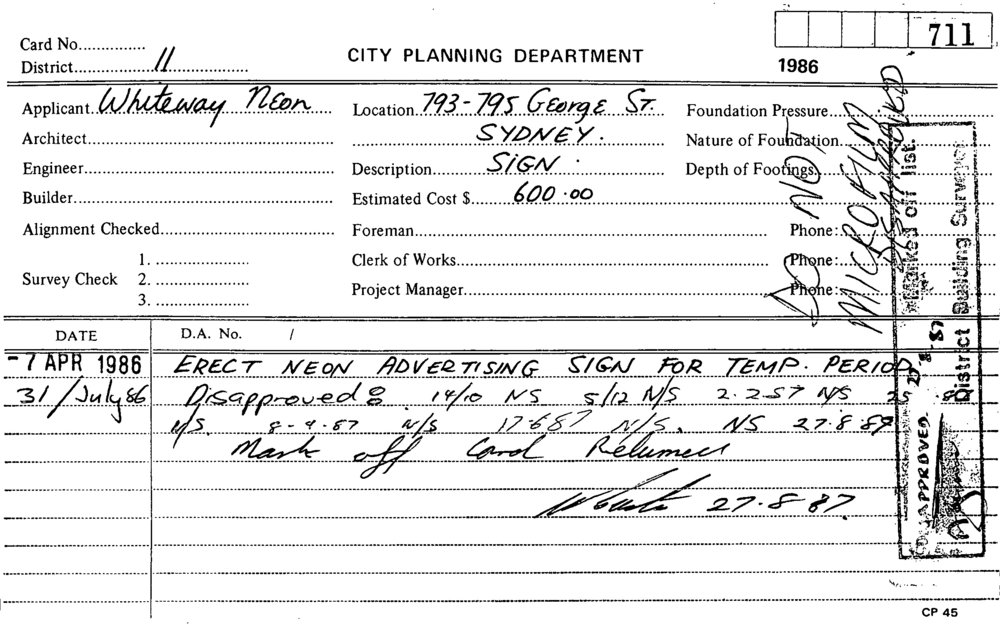 Card No.
711
District 11
CITY PLANNING DEPARTMENT
1986
Applicant Whiteway Neon
Location 793-795 George St.
Foundation Pressure
Architect
SYDNEY.
Nature of Foundation
Engineer
Description SIGN.
Depth of Footings
Builder
Estimated Cost $ 600.00
Alignment Checked
Foreman
Phone:
Survey Check
1.
2.
3.
Clerk of Works
Phone:
Project Manager
Phone:
DO NOT
MICROFILM
DISAPPROVED
Marked off list.
District Building Surveyor
27-8-87
DATE
D.A. No. /
-7 APR 1986 ERECT NEON ADVERTISING SIGN FOR TEMP. PERIOD
31/July 86 Disapproved 14/10 NS 5/12 N/S 2.2.87 N/S
N/S. 8-4-87 N/S 17-6-87 N/S. NS 27.8.87
Mark off Card Returned
27.8.87.
CP 45